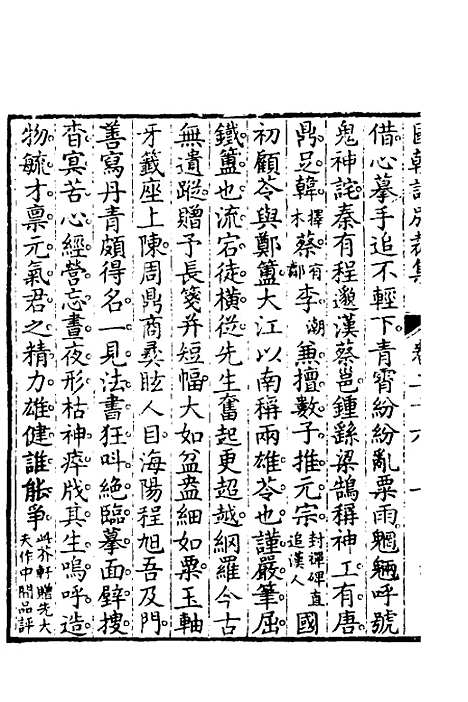 國朝詩別裁集 卷二十六 一
借心摹手追不輕下青霄紛紛亂粟雨魍魎呼號
鬼神詫秦有程邈漢蔡邕鍾繇梁鵠稱神工有唐
鼎足韓擇木蔡有鄰李潮兼擅數子推元宗封禪碑直追漢人國
初顧苓與鄭簠大江以南稱兩雄苓也謹嚴筆屈
鐵簠也流宕徒橫從先生奮起更超越網羅今古
無遺蹤贈予長箋并短幅大如盆盎細如粟玉軸
牙籤座上陳周鼎商彝眩人目海陽程旭吾及門
善寫丹青頗得名一見法書狂叫絕臨摹面壁搜
杳冥苦心經營忘晝夜形枯神瘁戕其生嗚呼造
物毓才稟元氣君之精力雄健誰能爭此芥軒贈先大夫作中閒品評